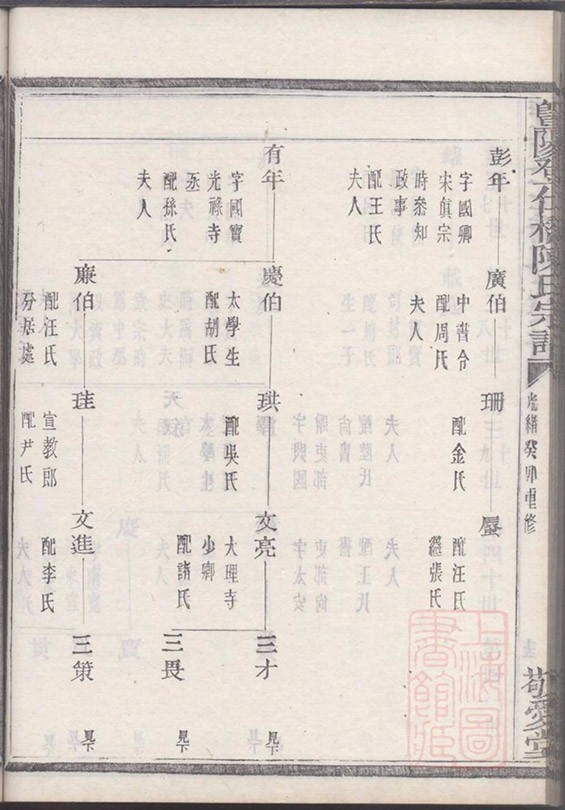 陳氏宗譜
光緒癸卯重修
敬愛堂
彭年
字國卿
宋真宗
時參知
政事
配王氏
夫人
廣伯
中書令
配周氏
夫人
珊
配金氏
蜃
配汪氏
繼張氏
有年
字國寶
光祿寺
丞
配孫氏
夫人
慶伯
太學生
配胡氏
珙
配吳氏
文亮
大理寺
少卿
配諸氏
三才
見下
三畏
見下
廉伯
配汪氏
分居處
珪
宣教郎
配尹氏
文進
配李氏
三策
見下
上海圖
書館藏